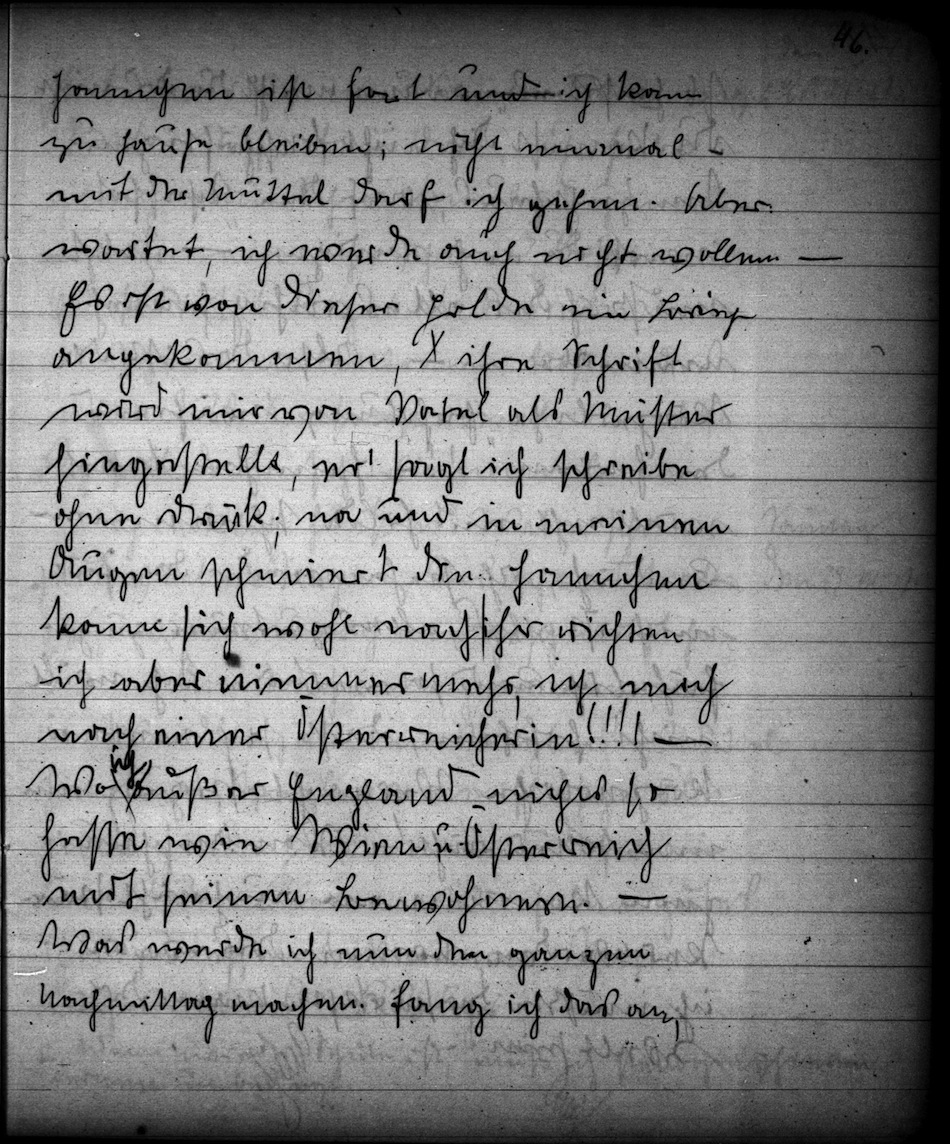 46.
Hannchen ist fort und ich kann
zu Hause bleiben; nicht einmal -
mit der Muttel darf ich gehen. Aber
wartet, ich werde auch nicht wollen —
Es ist von dieser Holde ein Brief
angekommen, X ihre Schrift
wird mir von Vatel als Muster
hingestellt, er sagt ich schreibe
ohne Druck; na und in meinen
Augen schmiert die. Hannchen
kann sich wohl nach ihr richten
ich aber nimmermehr, ich mich
nach einer Österreicherin!!!! —
Wo ich außer England nichts so
hasse wie Wien u. Österreich
mit seinen Bewohnern. —
Was werde ich nun den ganzen
Nachmittag machen. Fang ich das an,